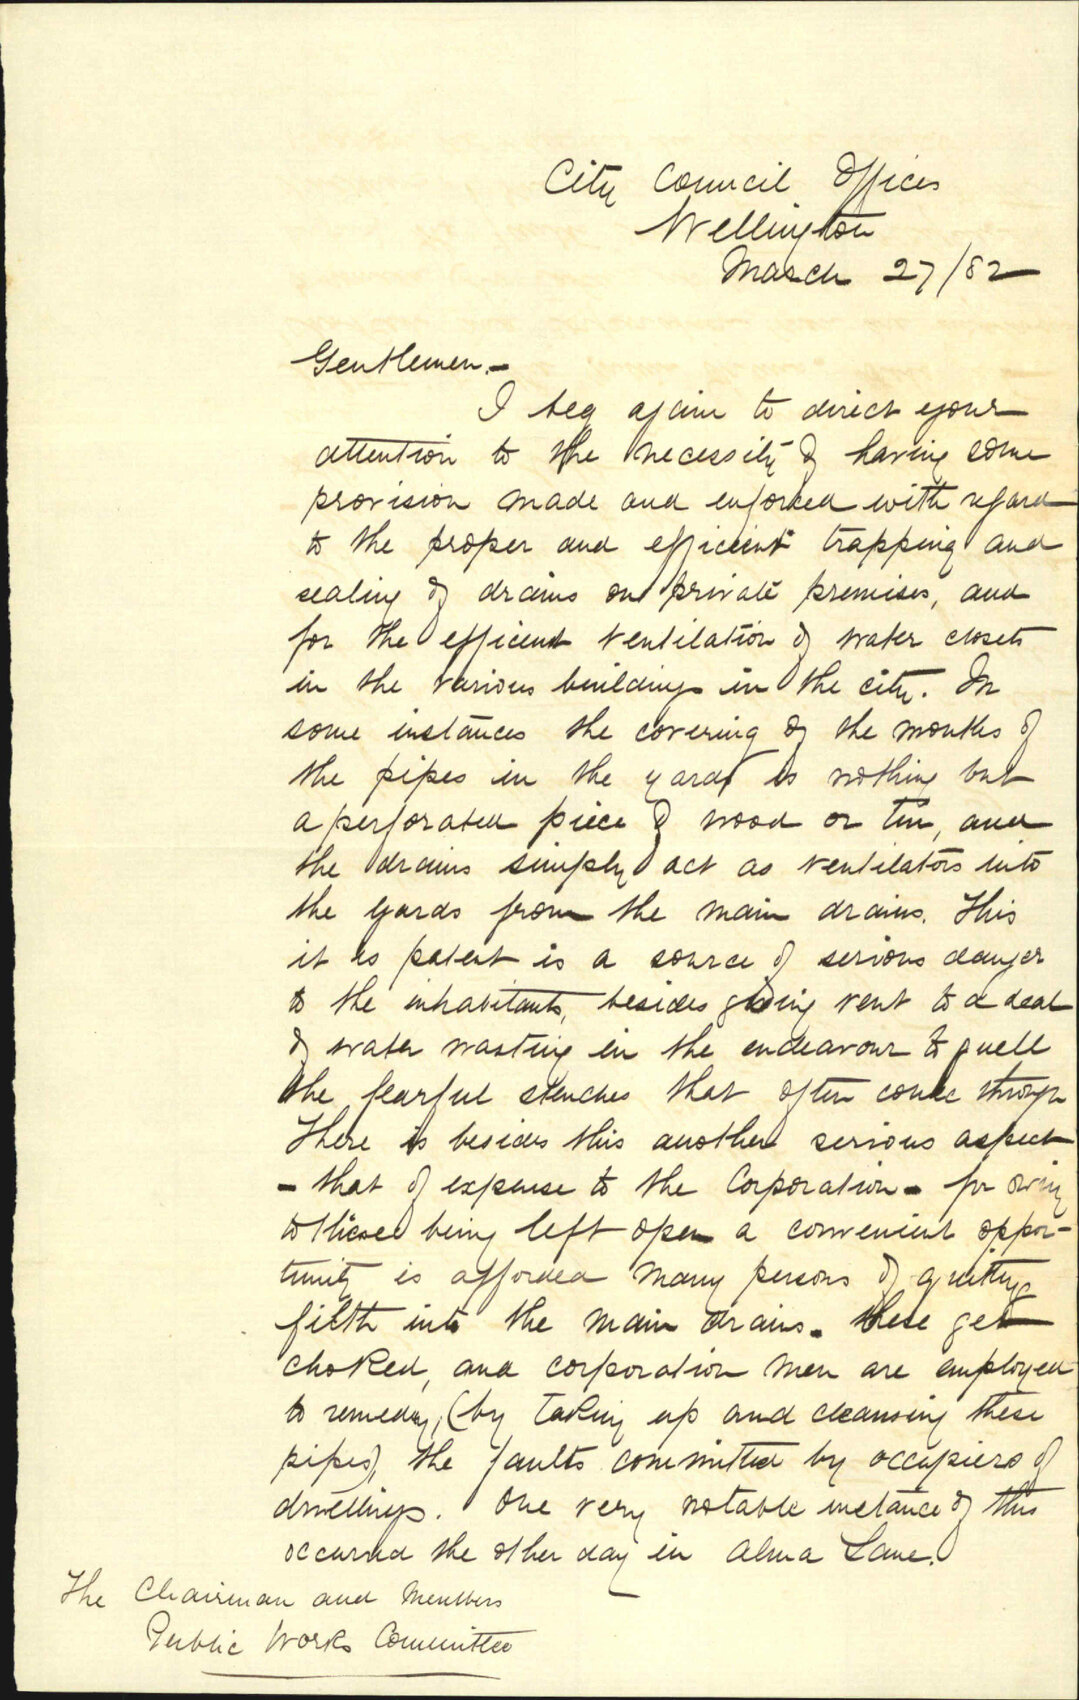 City Council Offices
Wellington
March 27/82
Gentlemen.-
I beg again to direct your
attention to the necessity of having some
provision made and enforced with regard
to the proper and efficient trapping and
sealing of drains on private premises, and
for the efficent ventilation of water closets
in the various buildings in the city. In
some instances the covering of the mouths of
the pipes in the yards is nothing but
a perforated piece of wood or tin, and
the drains simply act as ventilators into
the yards from the main drains. This
it is patent is a source of serious danger
to the inhabitants, besides giving vent to a deal
of water wasting in the endeavour to quell
the fearful stenches that often come through
There is besides this another serious aspect
- that of expense to the Corporation - for owing
to these being left open a convenient oppor-
tunity is afforded many persons of getting
filth into the main drains. these get
choked, and corporation men are employed
to remedy, (by taking up and cleansing these
pipes), the faults committed by occupiers of
dwellings. One very notable instance of this
occurred the other day in Alma Lane.
The Chairman and Members
Public Works Committee